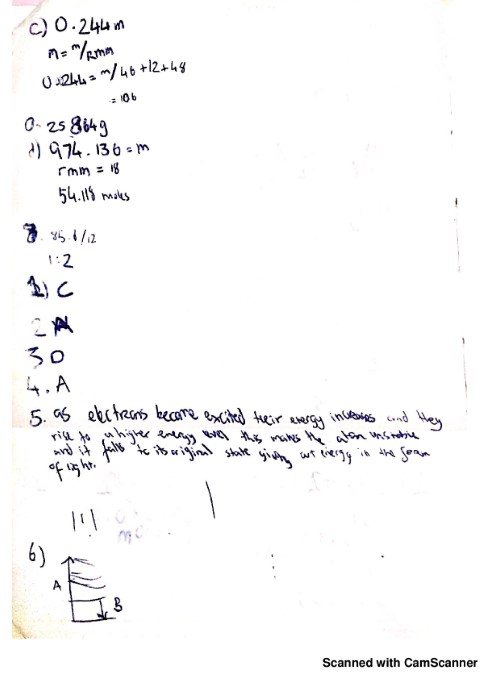 c) 0.244m
m = m/Rmm
0.244 = m/46+12+48
= 106
25.864g
d) 974.136 = m
rmm = 18
54.118 moles
85.1/12
1:2
1) C
2 A
3 D
4. A
5. as electrons become excited their energy increases and they
rise to a higher energy level this makes the atom unstable
and it falls to its original state giving out energy in the form
of light.
6)
A
B
Scanned with CamScanner